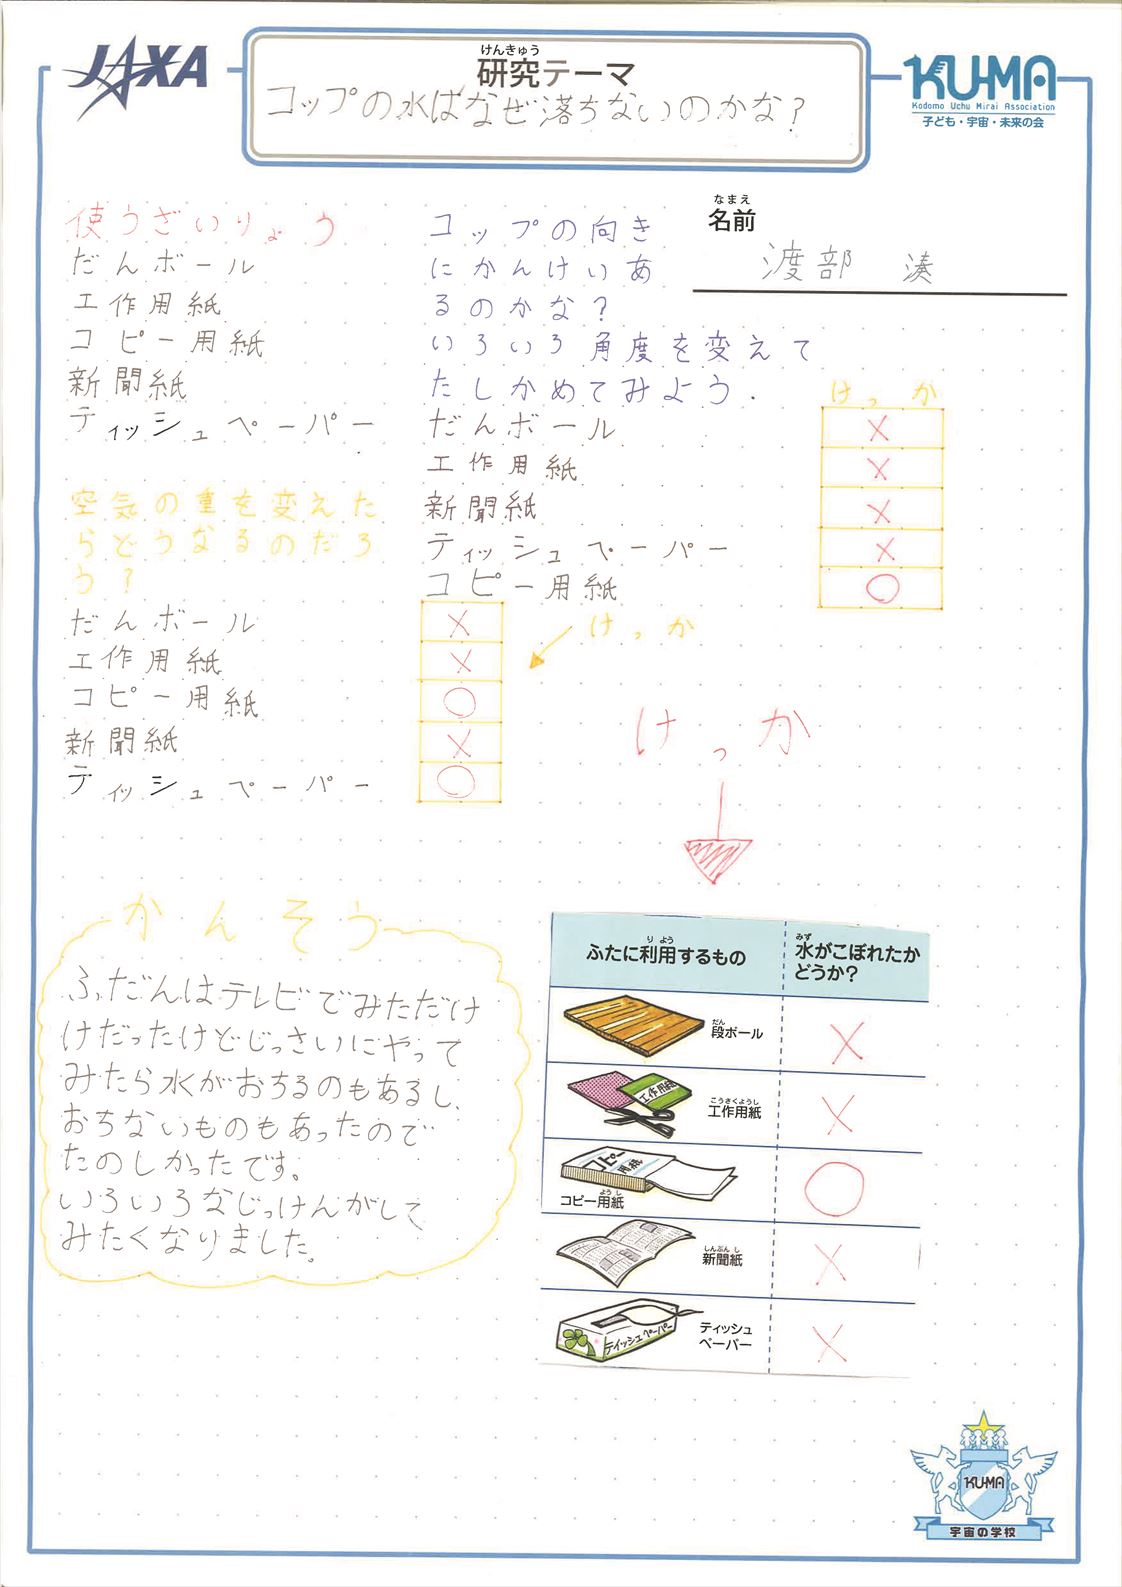 JAXA
けんきゅう
研究テーマ
コップの水はなぜ落ちないのかな?
KU-MA
Kodomo Uchu Mirai Association
子ども・宇宙・未来の会
なまえ
名前
渡部 湊
使うざいりょう
だんボール
工作用紙
コピー用紙
新聞紙
ティッシュペーパー
空気の重を変えた
らどうなるのだろ
う?
だんボール
工作用紙
コピー用紙
新聞紙
ティッシュペーパー
×
×
○
×
○
けっか
コップの向き
にかんけいあ
るのかな?
いろいろ角度を変えて
たしかめてみよう.
だんボール
工作用紙
新聞紙
ティッシュペーパー
コピー用紙
けっか
×
×
×
×
○
けっか
かんそう
ふだんはテレビでみただけ
けだったけどじっさいにやって
みたら水がおちるのもあるし、
おちないものもあったので
たのしかったです。
いろいろなじっけんがして
みたくなりました。
り よう
ふたに利用するもの
みず
水がこぼれたか
どうか?
だん
段ボール
×
工作用紙
こうさくようし
工作用紙
×
コピー
用紙
よう し
コピー用紙
○
しんぶん し
新聞紙
×
ティッシュペーパー
ティッシュ
ペーパー
×
KU-MA
宇宙の学校